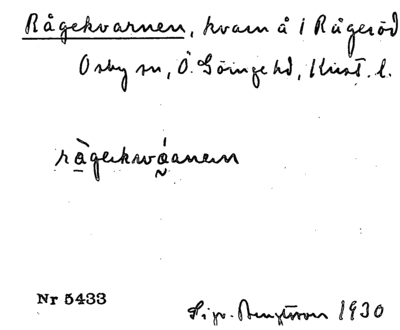 Rågekvarnen, kvarn å i Rågeröd
Osby sn, Ö. Göinge hd, Krist. l.
Nr 5433
Sigv. Bengtsson 1930